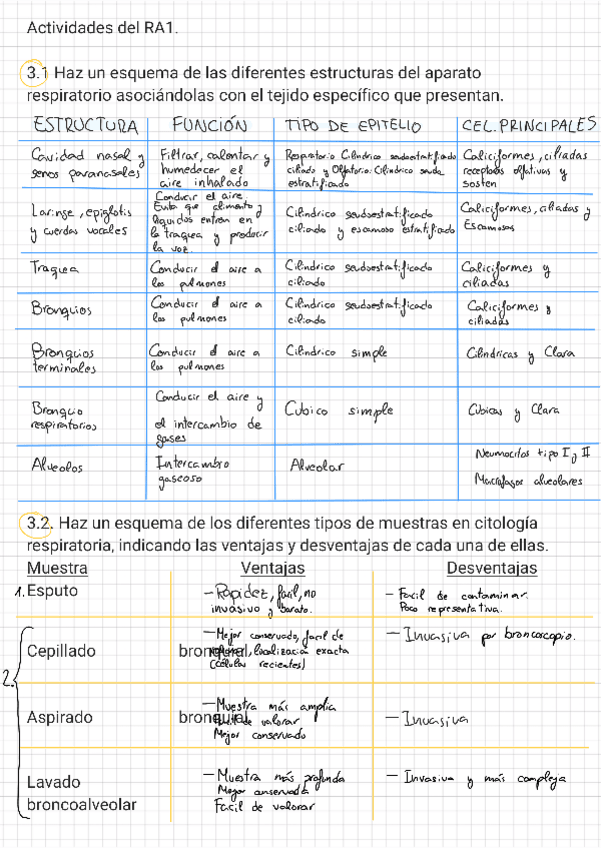 Actividades del RA1.
3.1 Haz un esquema de las diferentes estructuras del aparato
respiratorio asociándolas con el tejido específico que presentan.
ESTRUCTURA FUNCIÓN TIPO DE EPITELIO CEL. PRINCIPALES
Cavidad nasal y Filtrar, calentar y Respiratorio Cilíndrico seudoestratificado Caliciformes, ciliadas
senos paranasales humedecer el ciliado y Olfatorio: Cilíndrico seudo receptoras olfativas y
aire inhalado estratificado sosten
Conducir el aire
Laringe, epiglotis Evita que alimento y Cilíndrico seudoestratificado Caliciformes, ciliadas y
y cuerdas vocales liquidos entren en ciliado y escamoso estratificado Escamosas
la traquea y producir
la voz.
Traquea Conducir el aire a Cilíndrico seudoestratificado Caliciformes y
los pulmones ciliado ciliadas
Bronquios Conducir el aire a Cilíndrico seudoestratificado Caliciformes y
los pulmones ciliado ciliadas
Bronquios Conducir el aire a Cilíndrico simple Cilindricas y Clara
terminales los pulmones
Bronquio Conducir el aire y Cubico simple Cubicas y Clara
respiratorios el intercambio de
gases
Alveolos Intercambio Alveolar Neumocitos tipo I y II
gaseoso Macrófagos alveolares
3.2. Haz un esquema de los diferentes tipos de muestras en citología
respiratoria, indicando las ventajas y desventajas de cada una de ellas.
Muestra Ventajas Desventajas
1. Esputo – Rapidez, facil, no – Facil de contaminar.
invasivo y barato. Poco representativa.
2. Cepillado bronquial – Mejor conservado, facil de – Invasiva por broncoscopio.
localización exacta
(células recientes)
Aspirado bronquial – Muestra más amplia – Invasiva
de valorar
Mejor conservado
Lavado – Muestra más profunda – Invasiva y más compleja
broncoalveolar Mejor conservada
Facil de valorar